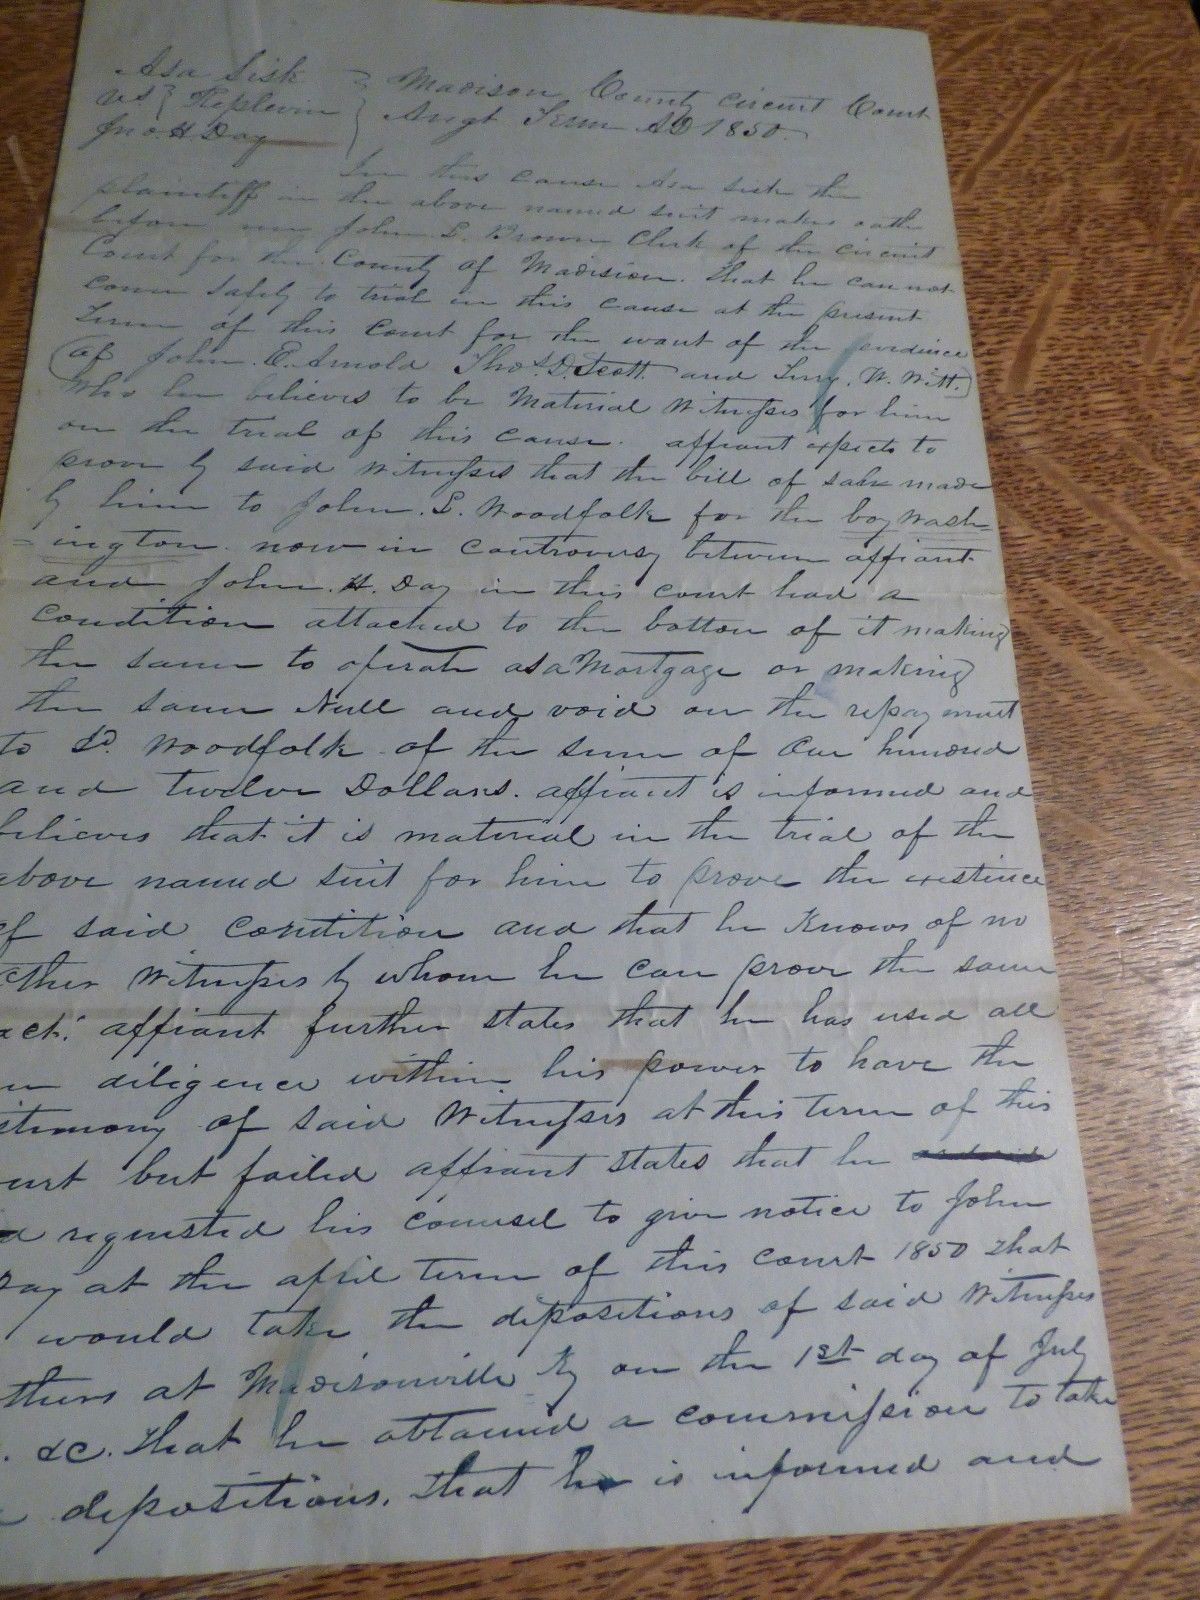 Asa Sisk
vs } Replevin
Jno. H. Day
Madison County Circuit Court
Augt Term AD 1850.
In this cause Asa Sisk the
plaintiff in the above named suit makes oath
before me John L. Brown Clerk of the circuit
Court for the County of Madision. that he can not
come safely to trial in this cause at the present
Term of this Court for the want of the evidence
of John. E. Arnold Thos. D. Scott. and W. Witt.
Who he believes to be Material Witnesses for him
on the trial of this cause. affiant expects to
prove by said Witnesses that the bill of sale made
by him to John. L. Woodfolk for the boy Wash
=ington. now in controversy between affiant
and John. H. Day in this court had a
condition attached to the bottom of it making
the same to operate as a Mortgage or making
the same Null and void on the repayment
to Sd. Woodfolk of the sum of one hundred
and twelve Dollars. affiant is informed and
believes that it is material in the trial of the
above named suit for him to prove the existence
of said condition and that he Knows of no
other Witnesses by whom he can prove the same
act. affiant further states that he has used all
diligence within his power to have the
stimony of said Witnesses at this term of this
urt but failed affiant states that he
d requested his counsel to give notice to John
Day at the april term of this court 1850 that
would take the depositions of said Witnesses
thers at Madisonville Ky on the 1st day of July
. &C. that he obtained a commission to take
depositions. that he is informed and